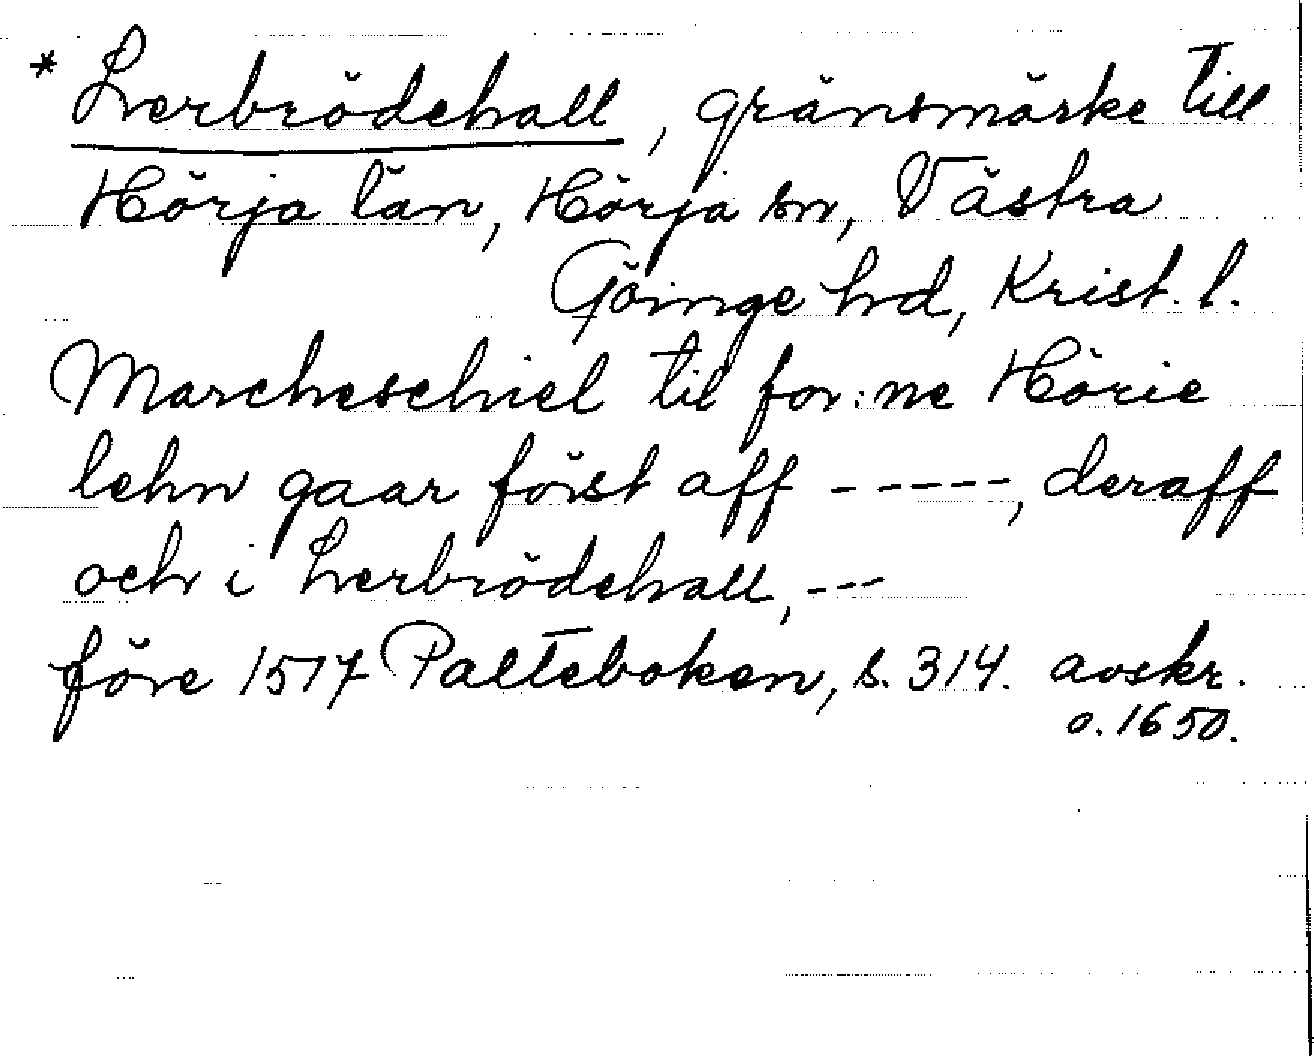 * Hverbrödehall, gränsmärke till
Hörja län, Hörja sn, Västra
Göinge hd, Krist. l.
Marcheschiel til for:ne Hörie
lehn gaar först aff -----, deraff
och i Hverbrödehall, ---
före 1517 Palteboken, s. 314. avskr.
o. 1650.